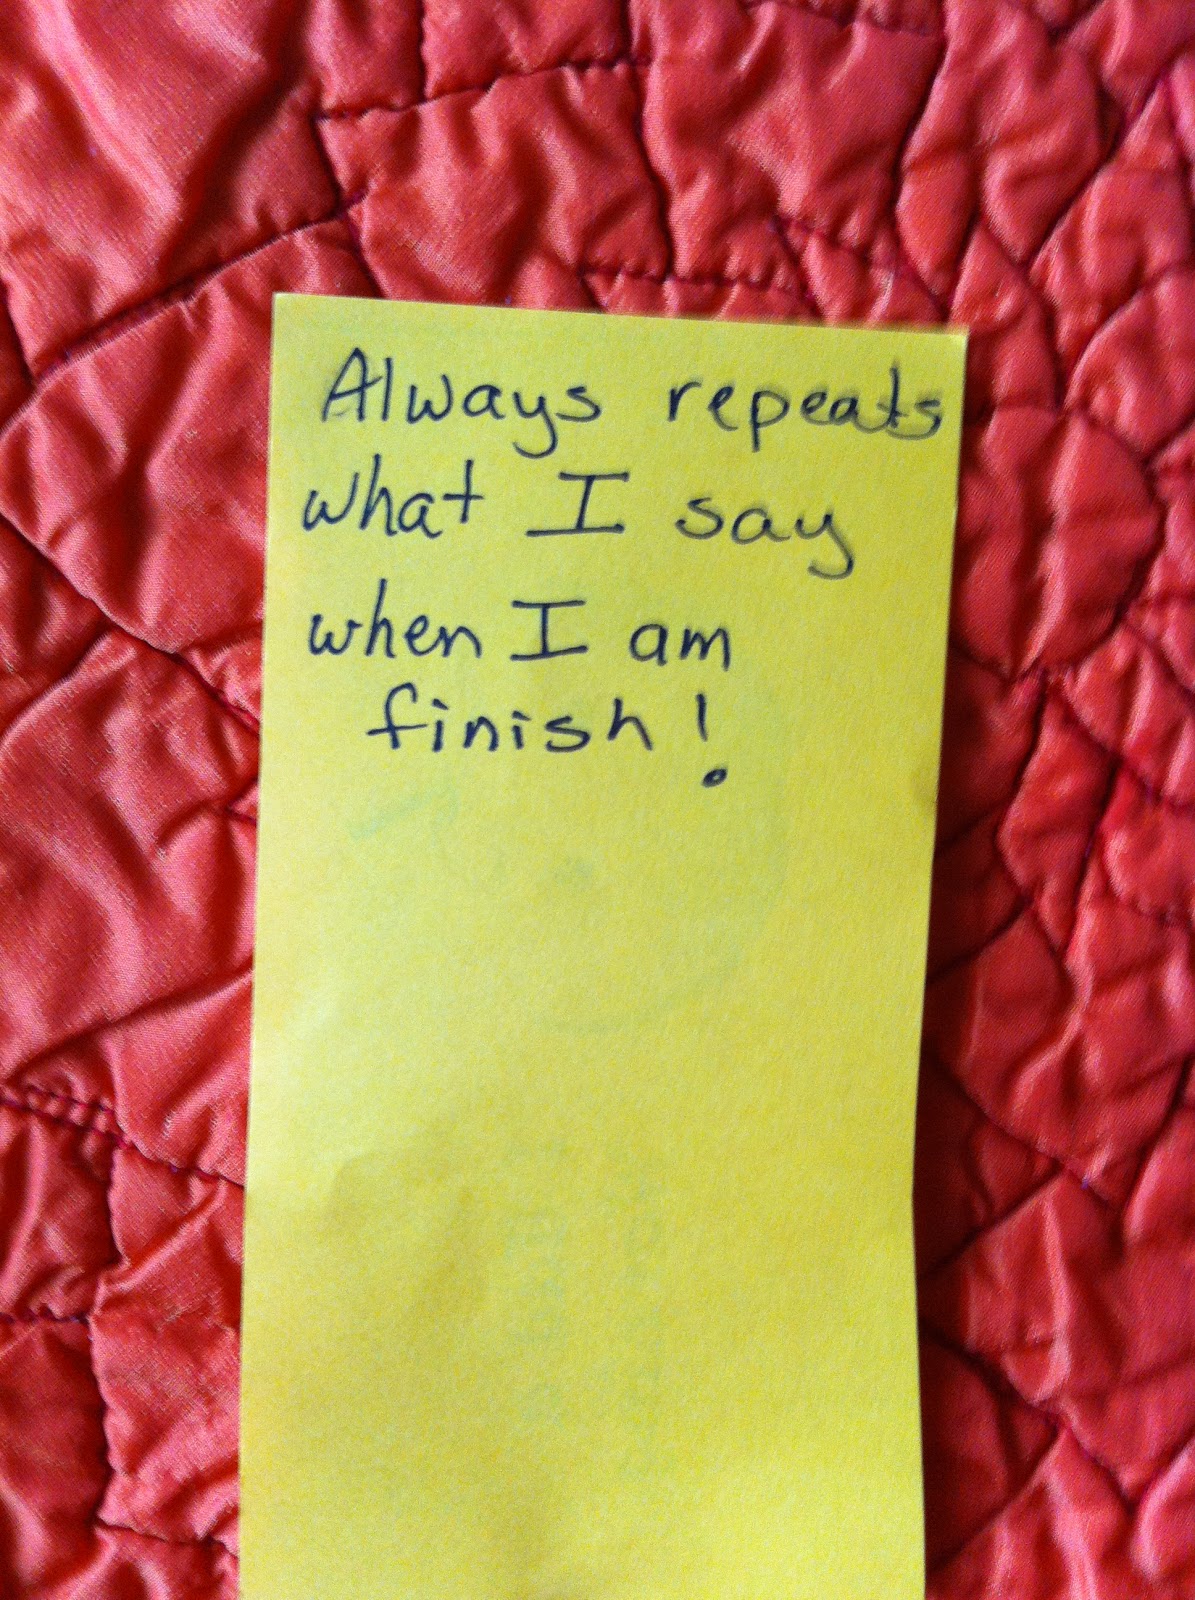 Always repeats
what I say
when I am
finish!